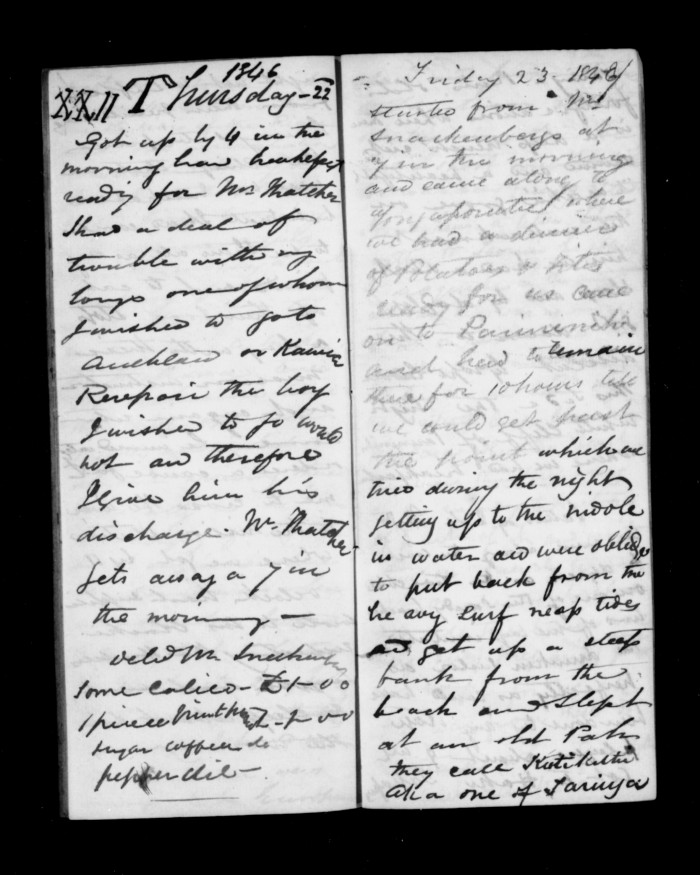 1846
XXII Thursday - 22
Got up by 4 in the
morning have breakfast
ready for Mr Thatcher
I had a deal of
trouble with my
boys one of whom
I wished to go to
Auckland or Kawia
the boy
I wished to go would
not and therefore
I give him his
discharge. Mr Thatcher
gets away a 7 in
the morning —
Mr
some calico - £1-0-0
1 piece Print
sugar coffee do
pepper
Friday 23 - 1846
started from Mr
Snackenbergs at
7 in the morning
and came along to
where
we had a dinner
of Potatoes &
ready for us came
on to
and had to remain
there for 10 hours till
we could get past
the point which we
tried during the night
getting up to the middle
in water and were obliged
to put back from the
heavy surf neap tides
get up a steep
bank from the
beach and slept
at an old Pah
they call
Aka one of